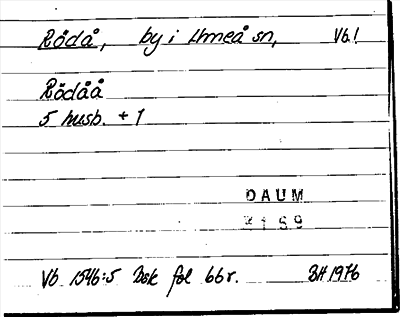 Rödå, by i Umeå sn, Vb.!
Rödåå
5 husb. + 1
DAUM
Vb 1546:5 Bsk fol 66 r. BH 1976